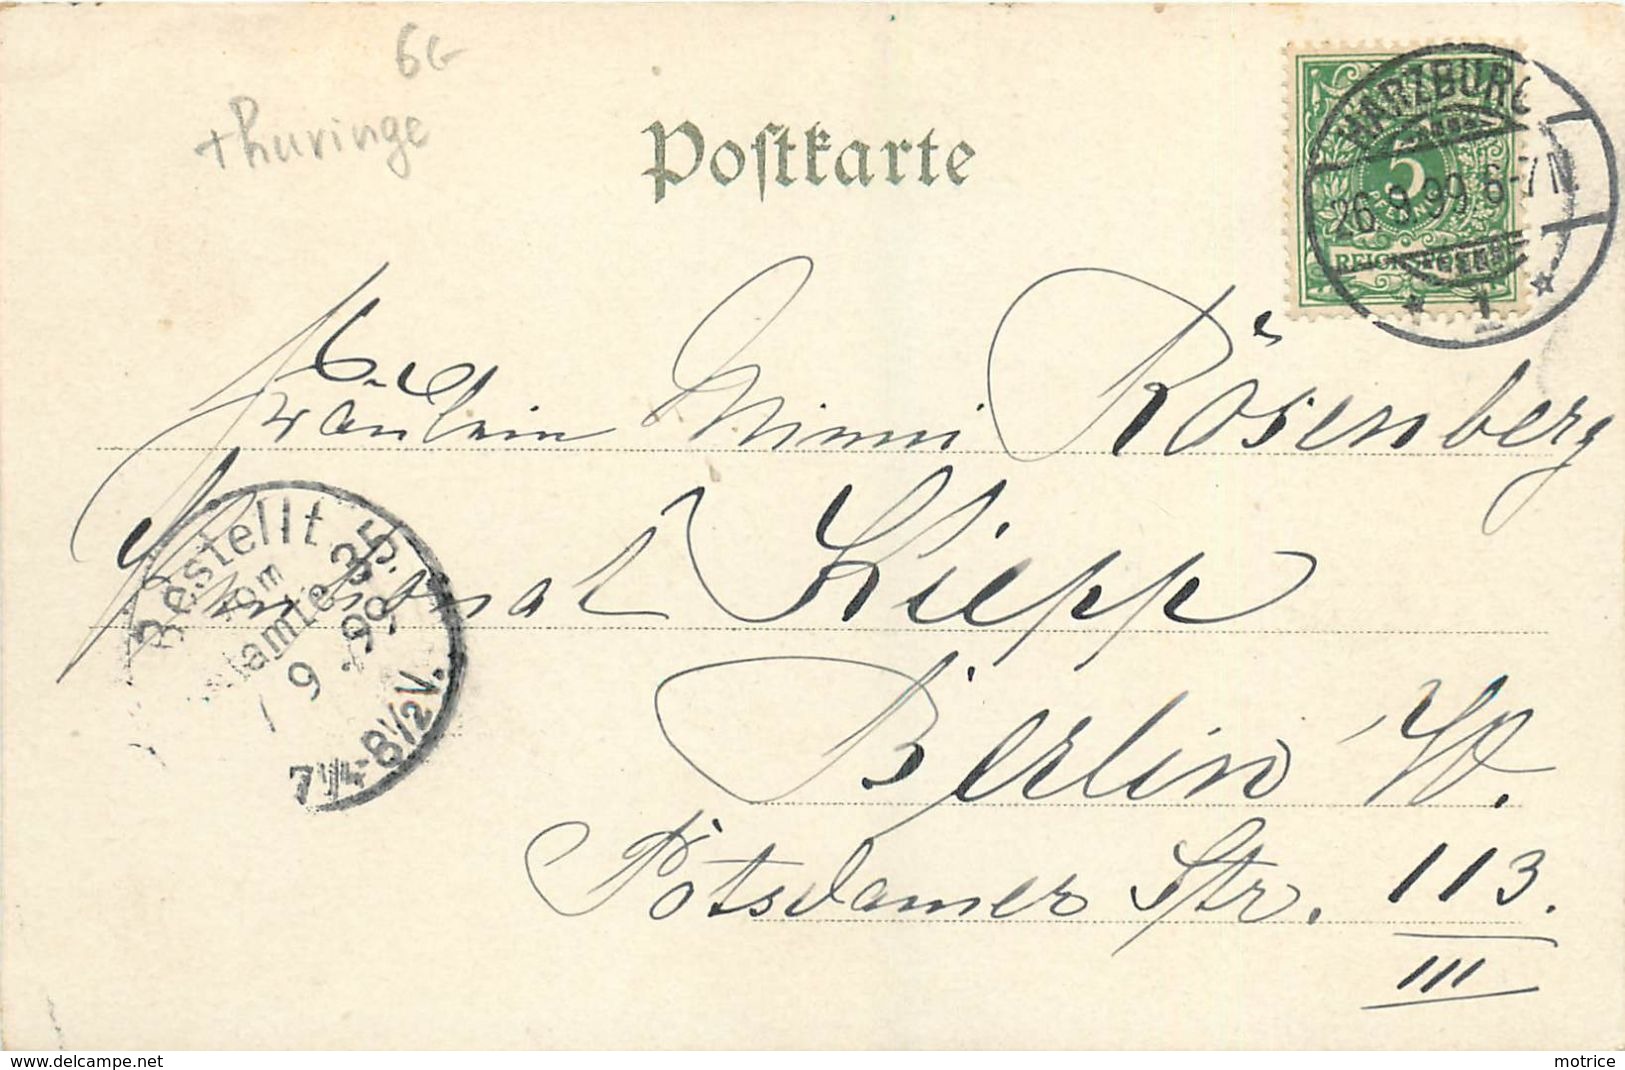 6€
Thuringe
Postkarte
HARZBURG
26.8.99.6-7N
* 1 *
5
PFENNIG
REICHSPOST
Fräulein Mimi Rosenberg
Pensionat Kiepp
Bestellt
vom
Postamte 35.
9 99
7¼-8½V.
Berlin W.
Potsdamer Str. 113.
III
www.delcampe.net
motrice